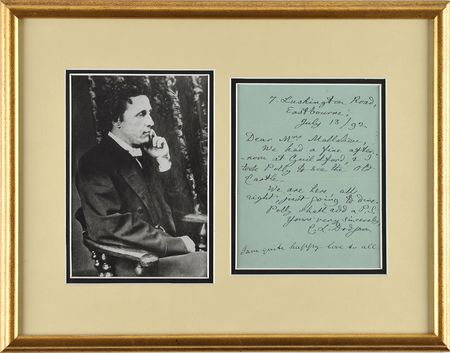 7, Lushington Road,
Eastbourne,
July 13/92
Dear Mrs
We had a fine after-
noon at Guildford, & I
took Polly to see the old
Castle.
We are here all
right, just going to dine.
Polly shall add a P.S.
Yours very sincerely,
C. L. Dodgson
I am quite happy love to all